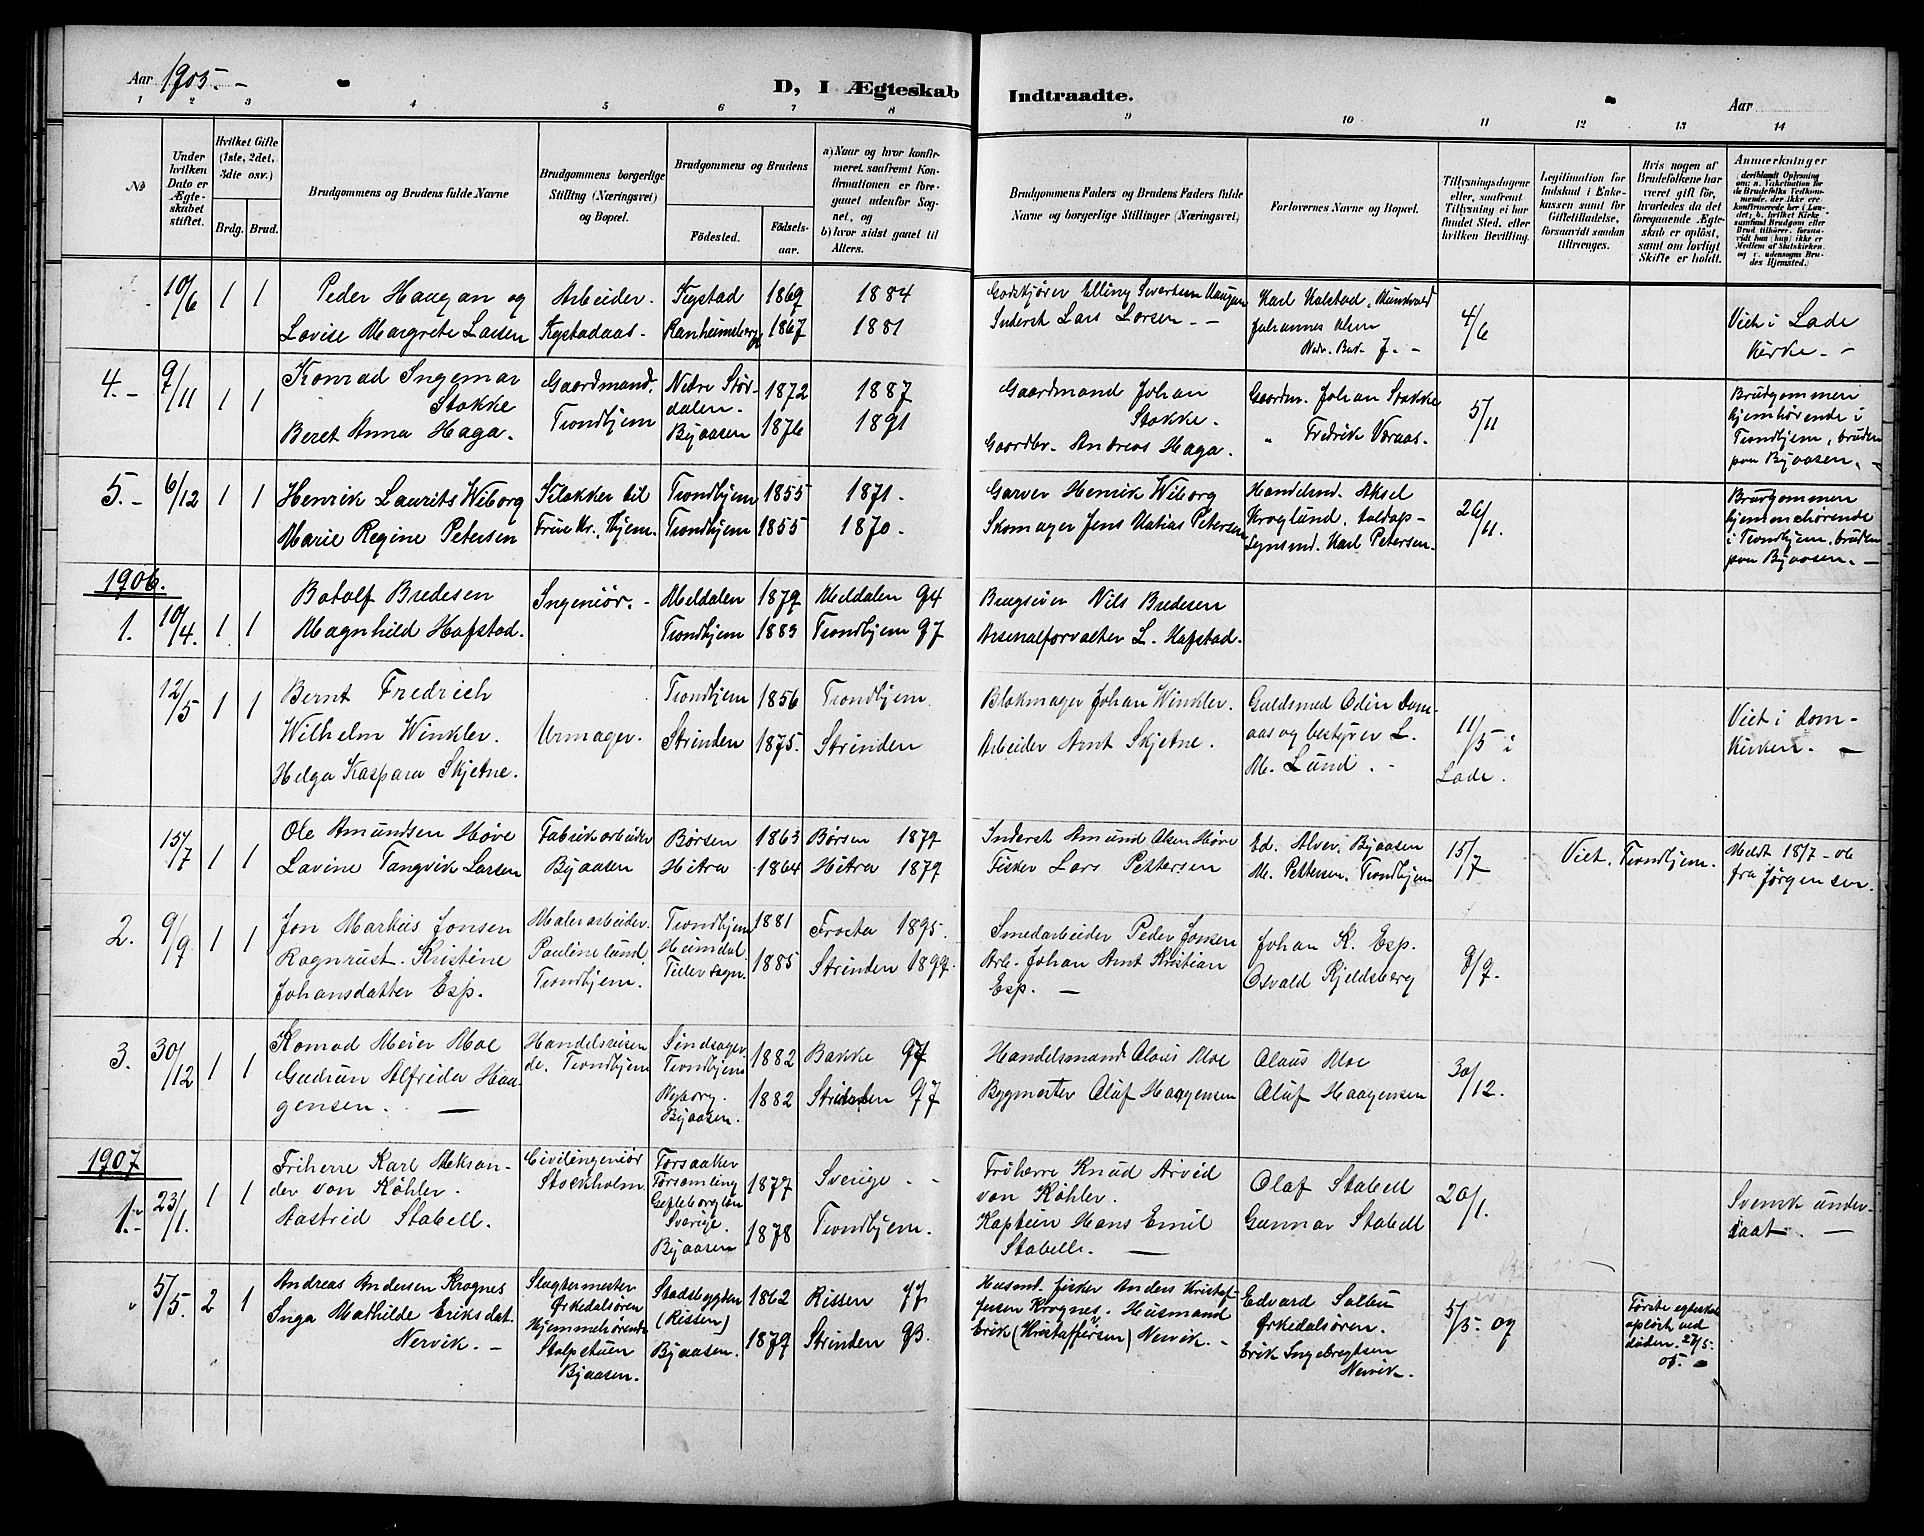 Aar 1905. -
D, I Ægteskab Indtraadte.
Aar
1 2 3 4 5 6 7 8 9 10 11 12 13 14
No
Under hvilken Dato er Ægteskabet stiftet.
Hvilket Gifte (1ste, 2det, 3die osv.)
Brdg. Brud.
Brudgommens og Brudens fulde Navne
Brudgommens borgerlige Stilling (Næringsvei) og Bopæl.
Brudgommens og Brudens
Fødested. Fødselsaar.
a) Naar og hvor konfirmeret, saafremt Konfirmationen er foregaaet udenfor Sognet, og
b) hvor sidst gaaet til Alters.
Brudgommens Faders og Brudens Faders fulde Navne og borgerlige Stillinger (Næringsvei)
Forlovernes Navne og Bopæl.
Tillysningsdagene eller, saafremt Tillysning ei har fundet Sted, efter hvilken Bevilling.
Legitimation for Indskud i Enkekassen samt for Giftetilladelse, forsaavidt saadan tiltrænges.
Hvis nogen af Brudefolkene har været gift før, hvorledes da det foregaaende Ægteskab er opløst, samt om lovligt Skifte er holdt.
Anmærkninger
10/6 1 1 Peder Haugan og Arbeider. Kystad 1869 1884 Godskjører Elling Sivertsen Haugan Karl Halstad, Munkvold 4/6 Viet i Lade
Lovise Margrete Larsen Kystadaas. Ranheimsberg 1867 1881 Inderst Lars Larsen. - Johannes Olsen Kirke. -
4. - 9/11 1 1 Konrad Ingemar Gaardmand. Nedre Stør- 1872 1887 Gaardmand Johan Gaardm. Johan Stokke 5/11 Brudgommen
Stokke Trondhjem dalen. Stokke. " Fredrik Væraas. hjemhørende i
Beret Anna Haga. Byaasen 1876 1891 Gaardbr. Andreas Haga. Trondhjem, bruden
paa Byaasen. -
5. - 6/12 1 1 Henrik Laurits Wiborg Klokker til Trondhjem 1855 1871. Garver Henrik Wiborg Handelsmd. Aksel 26/11. Brudgommen
Marie Regine Petersen Frue Kr., Thjem. Trondhjem 1855 1870. Skomager Jens Matias Petersen Kroglund, toldop- hjemmehørende
synsmd. Karl Petersen. i Trondhjem, bruden
paa Byaasen. -
1906.
1. 10/4. 1 1 Botolf Bredesen Ingeniør. - Meldalen 1879 Meldalen 94 Brugseier Nils Bredesen
Magnhild Hafstad. Trondhjem 1883 Trondhjem 97 Arsenalforvalter L. Hafstad.
12/5 1 1 Bernt Fredrich Trondhjem 1856 Trondhjem Blokmager Johan Winkler. Guldsmed Odin Dom- 11/5 i Viet i Dom-
Wilhelm Winkler. Urmager. Strinden 1875. Strinden Arbeider Arnt Skjetne. aas og bestyrer L. Lade. kirken. -
Helga Kaspara Skjetne. M. Lund. -
15/7 1 1 Ole Amundsen Høve Fabrikarbeider Børsen 1863 Børsen 1879 Inderst Amund Olsen Høve Ed. Alver, Byaasen 15/7 Viet. Trondhjem. Meldt 18/7 - 06
Lavine Tangvik Larsen Byaasen Hitra 1864 Hitra 1879 Fisker Lars Pettersen M. Pettersen, Trondhjem fra Jørgensen.
2. 9/9 1 1 Jon Markus Jonsen Malerarbeider Trondhjem 1881 Frosta 1895. Smedarbeider Peder Jonsen Johan K. Esp. 9/9.
Ragnrust. Kristine Paulinelund, Heimdal Arb. Johan Arnt Kristian Osvald Kjeldsberg
Johansdatter Esp. Trondhjem. Tiller sogn. 1885 Strinden 1899. Esp. -
3. 30/12 1 1 Konrad Meier Moe Handelsreisen- 1882 Bakke 97 Handelsmand Olaus Moe Olaus Moe 30/12.
Gudrun Alfrida Haa- de, Trondhjem Trondhjem Bygmester Oluf Haagensen Oluf Haagensen
gensen. - Nyborg. Byaasen. 1882 Strinden 97
1907
1. 23/1. 1 1 Friherre Karl Aleksan- Civilingeniør Torsaaker 1877 Sverige - Friherre Knud Arvid Olaf Stabell 20/1. Svensk under-
der von Köhler. Stockholm Församling von Köhler. Gunnar Stabell saat. -
Aastrid Stabell. Gefleborg län Sverige. Byaasen 1878 Trondhjem. Kaptein Hans Emil
Stabell. -
5/5. 2 1 Andreas Andersen Krognes Slagtermester Stadsbygden 1862 Rissen 77 Husmd. fisker Anders Kristof- Edvard Solbu 5/5. 07 Første egteskab
Inga Mathilde Eriksdat. Ørkedalsøren (Rissen) fersen Krognes. Husmand Ørkedalsøren. opløst ved
Nervik. - Hjemmehørende Byaasen. 1879 Strinden 93. Erik (Kristaffersen) Nervik. - Erik Ingebregtsen døden. 27/5.
Stolpstuen Nervik. 05. -
Byaasen.